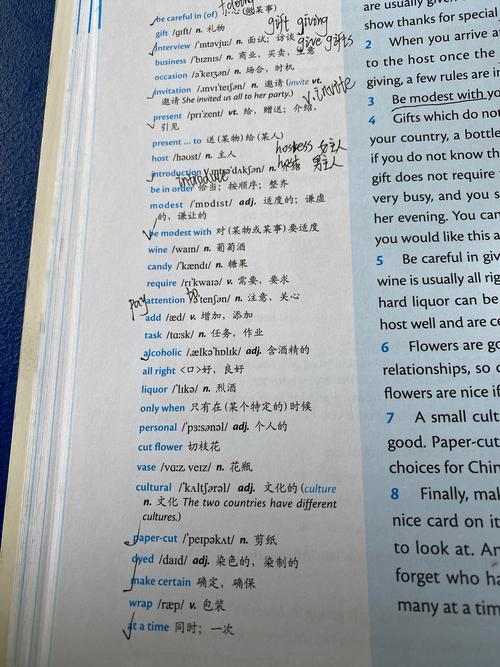 be careful in (of) 小心(做某事)
gift giving
gift /gɪft/ n. 礼物
interview /ˈɪntəvjuː/ n. 面试；访谈
give gifts
business /ˈbɪznɪs/ n. 商业，买卖，生意
occasion /əˈkeɪʒən/ n. 场合，时机
invitation /ˌɪnvɪˈteɪʃən/ n. 邀请 (invite vt.
邀请 She invited us all to her party.)
v. invite
present /prɪˈzent/ vt. 给，赠送；介绍，
引见
present ... to 送(某物)给(某人)
hostess 女主人
host /həʊst/ n. 主人
host 男主人
introduction /ˌɪntrəˈdʌkʃən/ n. 介绍
introduce
be in order 恰当；按顺序；整齐
modest /ˈmɒdɪst/ adj. 适度的；谦虚
的，谦让的
be modest with 对(某物或某事)要适度
wine /waɪn/ n. 葡萄酒
candy /ˈkændɪ/ n. 糖果
require /rɪˈkwaɪə/ v. 需要，要求
pay attention to /əˈtenʃən/ n. 注意，关心
add /æd/ v. 增加，添加
task /tɑːsk/ n. 任务，作业
alcoholic /ˌælkəˈhɒlɪk/ adj. 含酒精的
all right <口>好，良好
liquor /ˈlɪkə/ n. 烈酒
only when 只有在(某个特定的)时候
personal /ˈpɜːsənəl/ adj. 个人的
cut flower 切枝花
vase /vɑːz, veɪz/ n. 花瓶
cultural /ˈkʌltʃərəl/ adj. 文化的 (culture
n. 文化 The two countries have different
cultures.)
paper-cut /ˈpeɪpəkʌt/ n. 剪纸
dyed /daɪd/ adj. 染色的，染制的
make certain 确定，确保
wrap /ræp/ v. 包装
at a time 同时；一次
are usually given
show thanks for special
2 When you arrive a
to the host once the
giving, a few rules are i
3 Be modest with yo
4 Gifts which do not
your country, a bottle
if you do not know th
gift does not require
very busy, and you s
her evening. You can
you would like this a
5 Be careful in giv
wine is usually all rig
hard liquor can be
host well and are ce
6 Flowers are go
relationships, so c
flowers are nice if
7 A small cult
good. Paper-cut
choices for Chin
8 Finally, mak
nice card on it
to look at. An
forget who ha
many at a time